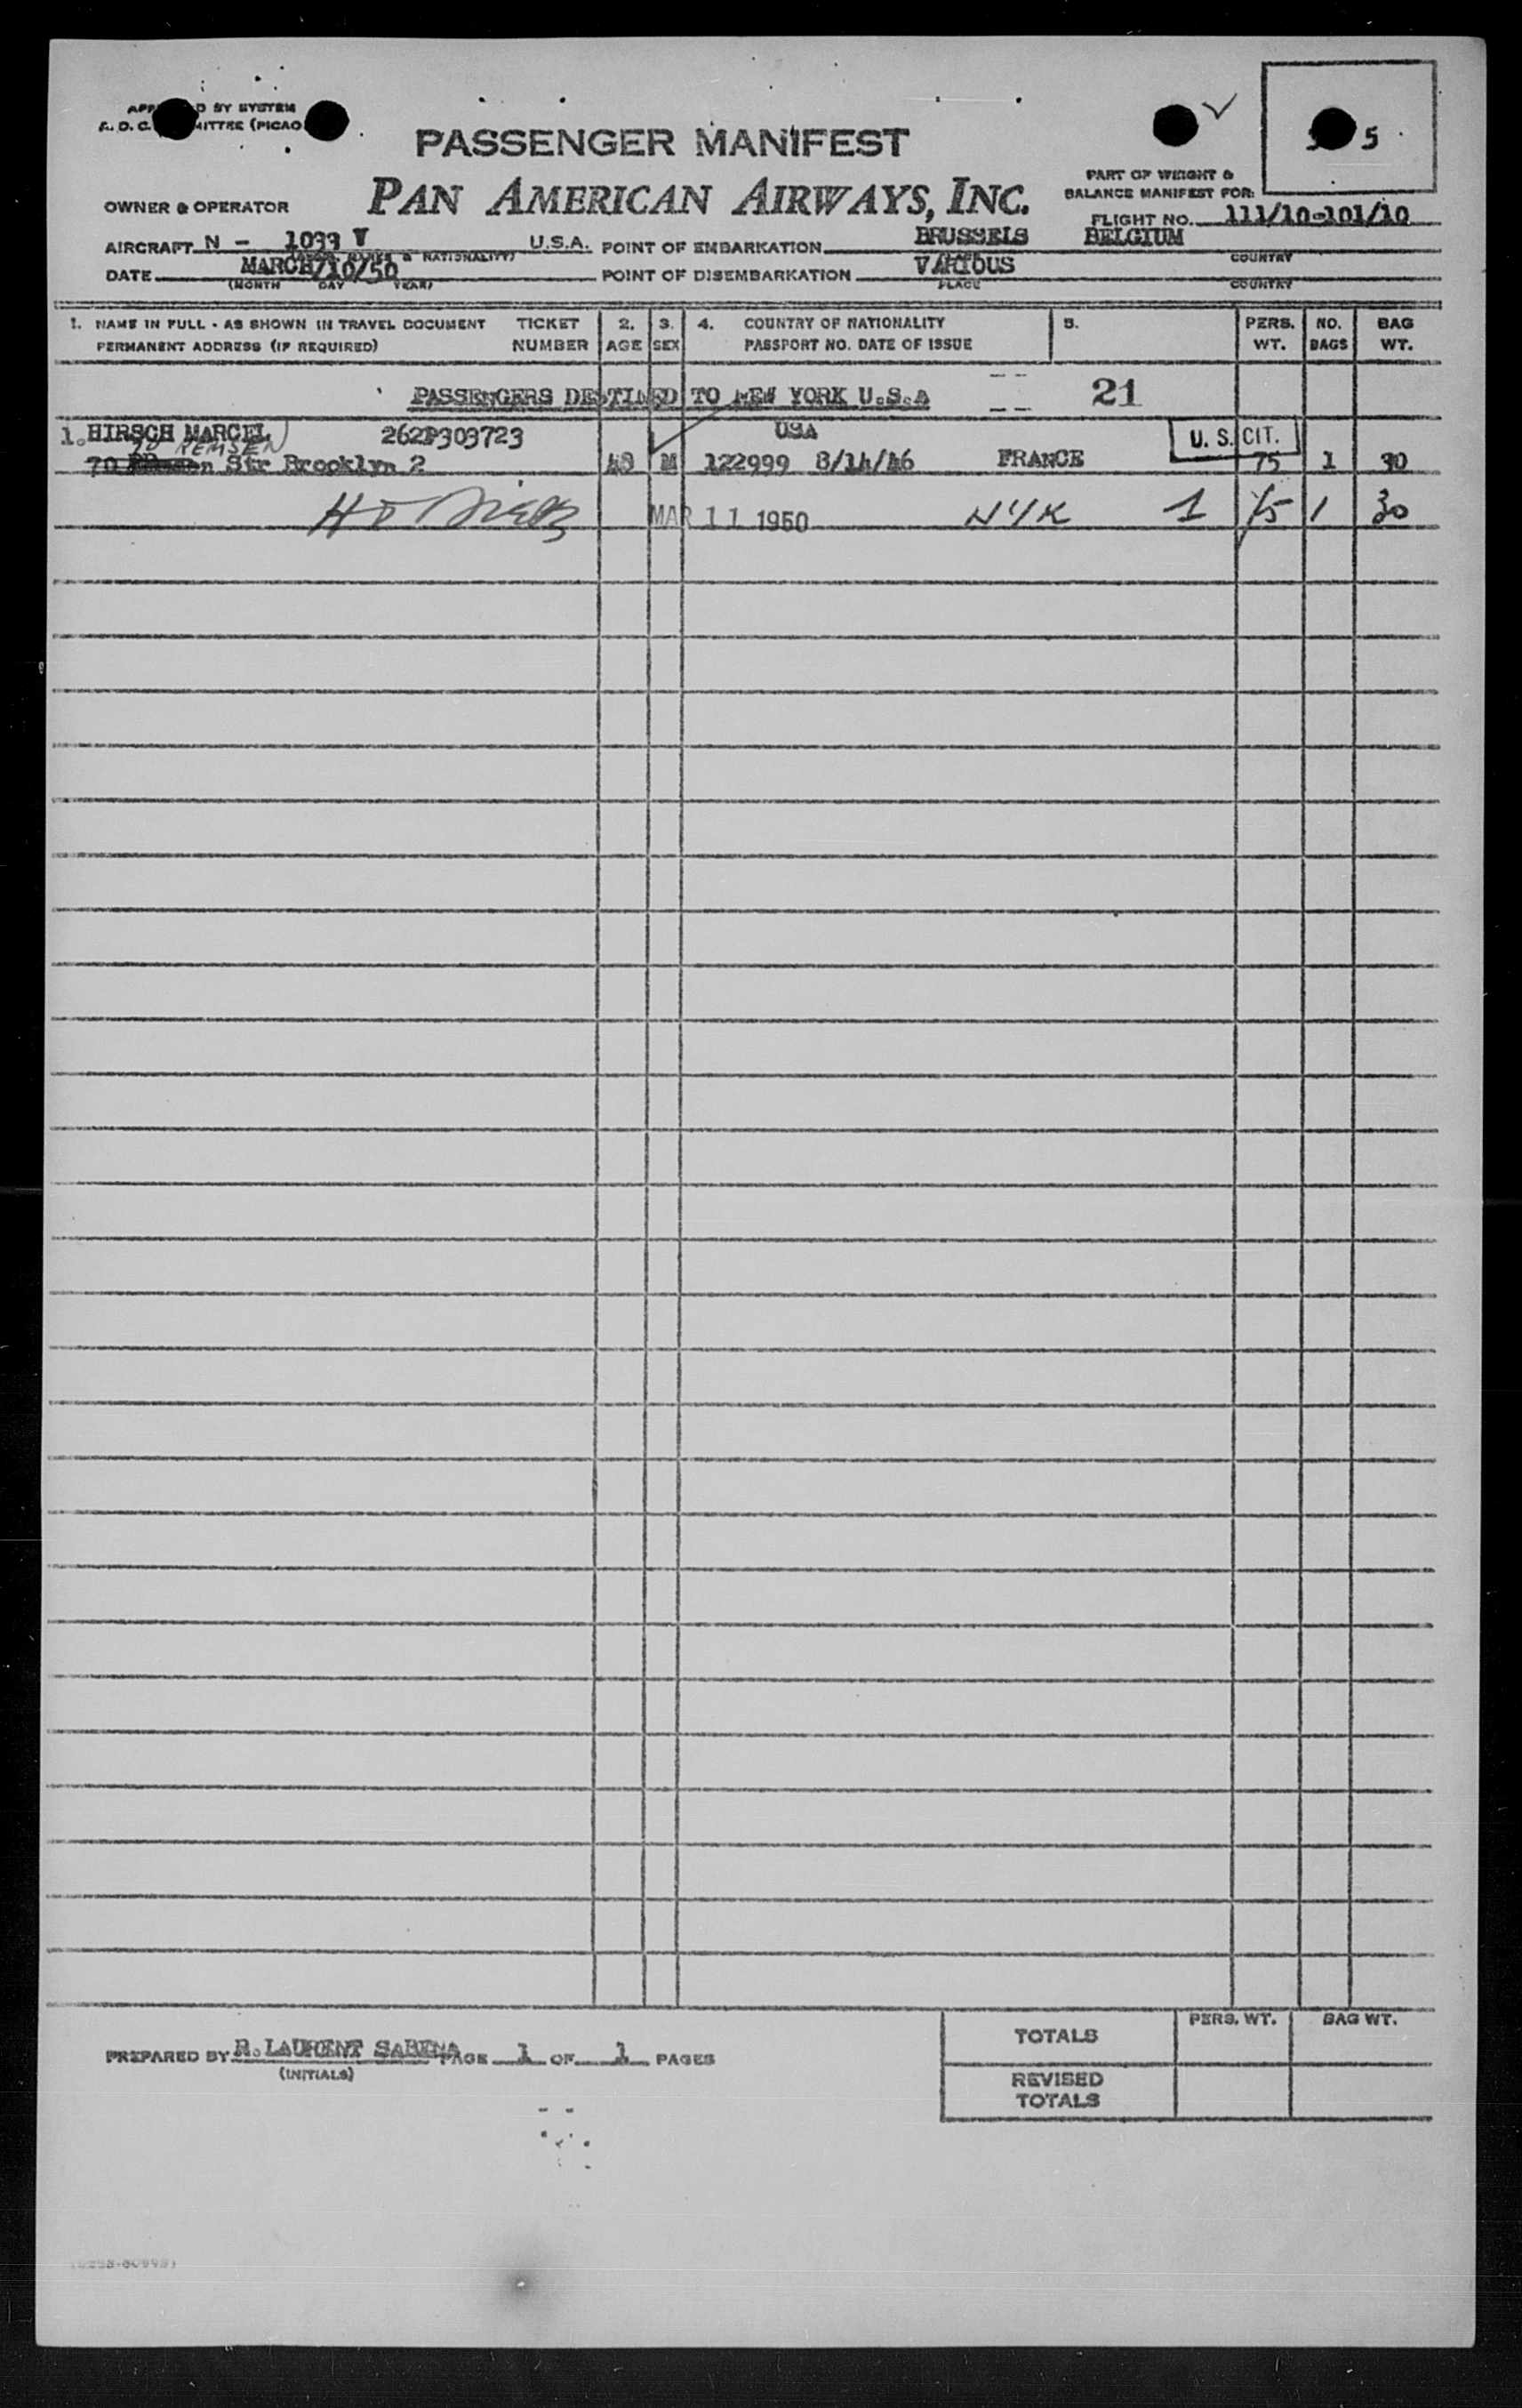 BY SYSTEM
PASSENGER MANIFEST
5
PART OF WEIGHT &
BALANCE MANIFEST FOR:
OWNER & OPERATOR PAN AMERICAN AIRWAYS, INC.
FLIGHT NO. 111/10-101/10
AIRCRAFT N - 1033 V U.S.A. POINT OF EMBARKATION BRUSSELS BELGIUM
& NATIONALITY) COUNTRY
DATE MARCH/10/50 POINT OF DISEMBARKATION VARIOUS
(MONTH DAY YEAR) PLACE COUNTRY
1. NAME IN FULL - AS SHOWN IN TRAVEL DOCUMENT TICKET 2. 3. 4. COUNTRY OF NATIONALITY 5. PERS. NO. BAG
PERMANENT ADDRESS (IF REQUIRED) NUMBER AGE SEX PASSPORT NO. DATE OF ISSUE WT. BAGS WT.
PASSENGERS DESTINED TO NEW YORK U.S.A 21
1. HIRSCH MARCEL 262P303723 USA U. S. CIT.
70 REMSEN
70 Str Brooklyn 2 48 M 122999 8/14/46 FRANCE 75 1 30
MAR 11 1950 NYK 1 75 1 30
PREPARED BY R. LAURENT SABENA PAGE 1 OF 1 PAGES
(INITIALS)
TOTALS PERS. WT. BAG WT.
REVISED
TOTALS